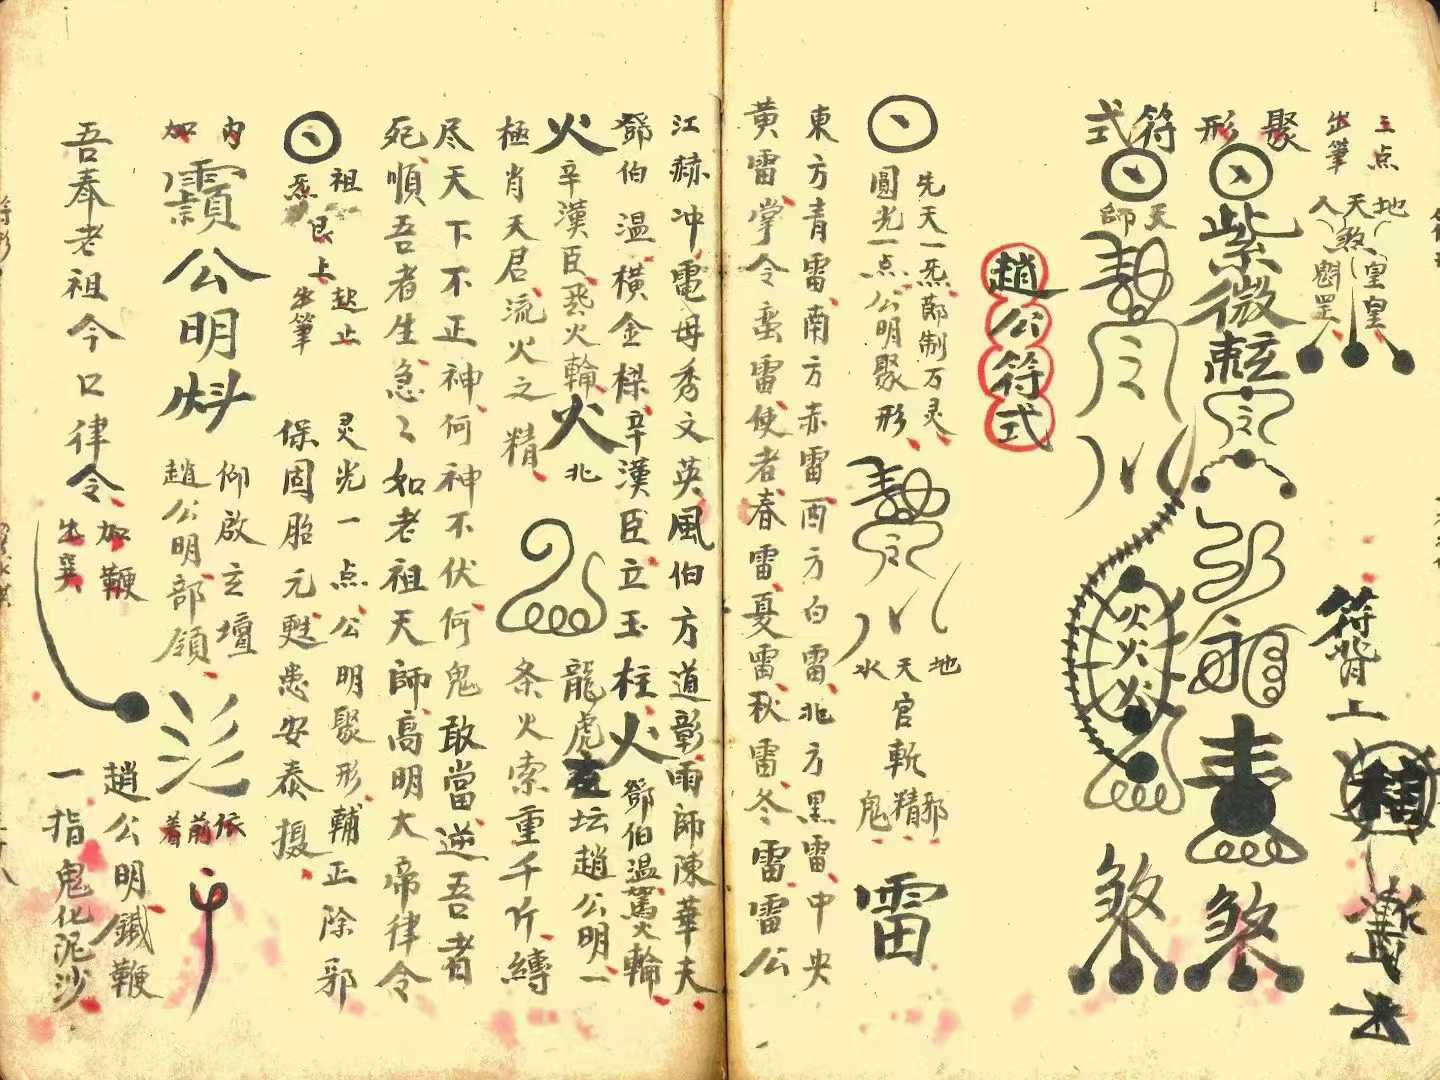 三点
出筆
地天人
煞
皇皇
魁罡
符背上
斬
聚形符式
紫微
煞
天師
煞
趙公符式
先天一炁節制万灵
圓光一点公明聚形
地天水
官斬邪精鬼
雷
東方青雷南方赤雷酉方白雷北方黑雷中央
黃雷掌令蛮雷使者春雷夏雷秋雷冬雷雷公
江赫冲電母秀文英風伯方道彰雨師陳華夫
鄧伯温横金樑辛漢臣立玉柱火鄧伯温駕火輪
火辛漢臣飛火輪火北龍虎玄坛趙公明一
極肖天君流火之精条火索重千斤縛
尽天下不正神何神不伏何鬼敢當逆吾者
死順吾者生急〻如老祖天師高明大帝律令
祖炁
艮上起止出筆
灵光一点公明聚形輔正除邪
保固胎元甦患安泰摄
内加
公明
仰啟玄壇
趙公明部領
依前着
吾奉老祖今口律令
加鞭出奕
趙公明鐵鞭
一指鬼化泥沙